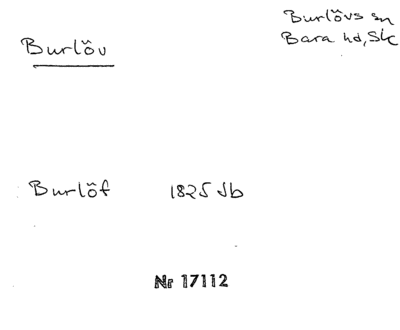 Burlöv
Burlövs sn
Bara hd, Sk
Burlöf 1825 Jb
Nr 17112